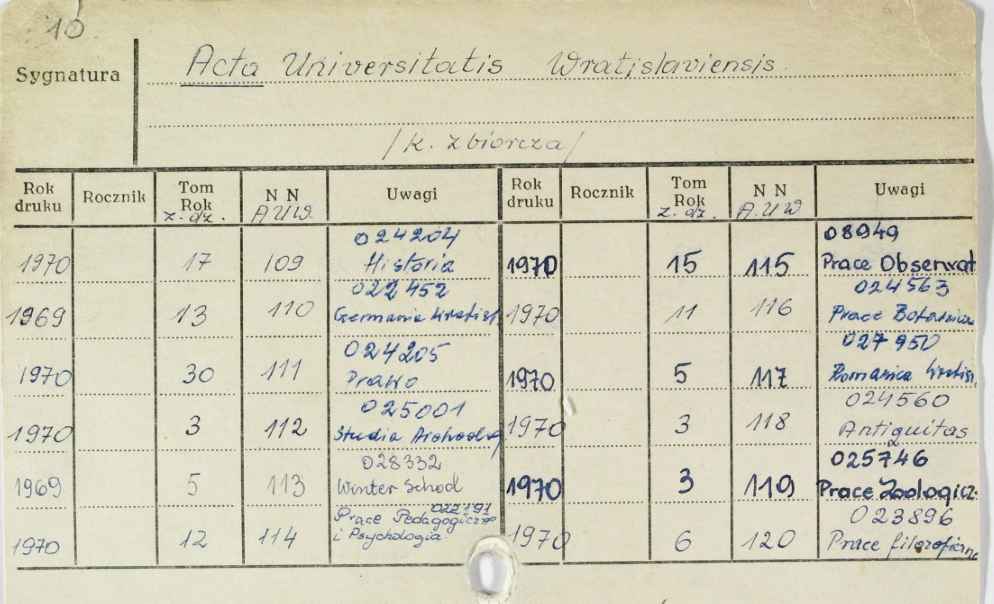 10
Sygnatura Acta Universitatis Wratislaviensis
/k. zbiorcza/
Rok druku Rocznik Tom Rok z. dz. NN A.U.W. Uwagi Rok druku Rocznik Tom Rok z. dz. NN A.U.W Uwagi
024204 08949
1970 17 109 Historia 1970 15 115 Prace Obserwat
022452 024563
1969 13 110 Germanica Wratisl 1970 11 116 Prace Botanicz
024205 027950
1970 30 111 Prawo 1970 5 117 Romanica Wratisl.
025001 024560
1970 3 112 Studia 1970 3 118 Antiquitas
028332 025746
1969 5 113 Winter School 1970 3 119 Prace Zoologicz.
Prace Pedagogiczne 023896
1970 12 114 i Psychologia 1970 6 120 Prace filozoficzne